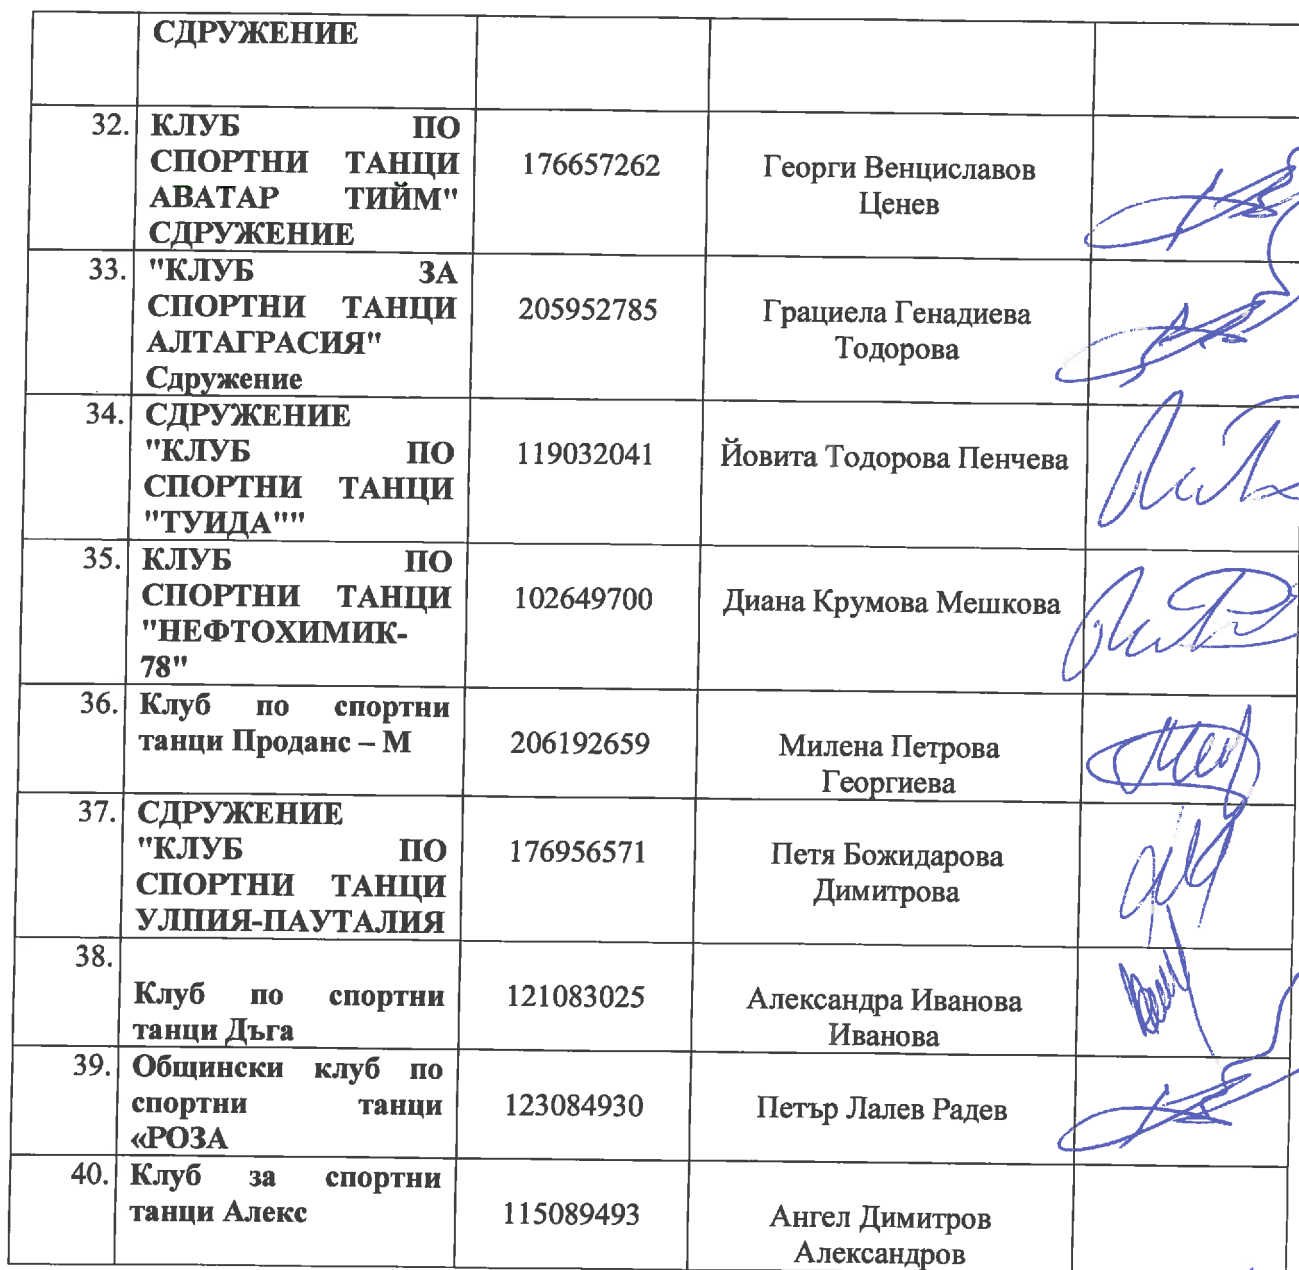 СДРУЖЕНИЕ
32. КЛУБ ПО
СПОРТНИ ТАНЦИ
АВАТАР ТИЙМ"
СДРУЖЕНИЕ
176657262
Георги Венциславов
Ценев
33. "КЛУБ ЗА
СПОРТНИ ТАНЦИ
АЛТАГРАСИЯ"
Сдружение
205952785
Грациела Генадиева
Тодорова
34. СДРУЖЕНИЕ
"КЛУБ ПО
СПОРТНИ ТАНЦИ
"ТУИДА""
119032041
Йовита Тодорова Пенчева
35. КЛУБ ПО
СПОРТНИ ТАНЦИ
"НЕФТОХИМИК-
78"
102649700
Диана Крумова Мешкова
36. Клуб по спортни
танци Проданс – М
206192659
Милена Петрова
Георгиева
37. СДРУЖЕНИЕ
"КЛУБ ПО
СПОРТНИ ТАНЦИ
УЛПИЯ-ПАУТАЛИЯ
176956571
Петя Божидарова
Димитрова
38.
Клуб по спортни
танци Дъга
121083025
Александра Иванова
Иванова
39. Общински клуб по
спортни танци
«РОЗА
123084930
Петър Лалев Радев
40. Клуб за спортни
танци Алекс
115089493
Ангел Димитров
Александров